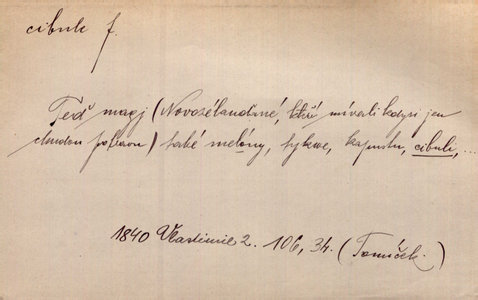 cibule f.
Teď magj (Novozélanďané, kteří mívali kdysi jen
chudou potravu) také melóny, tykwe, kapustu, cibuli, ...
1840 Vlastimil 2. 106, 34. (Tomíček.)